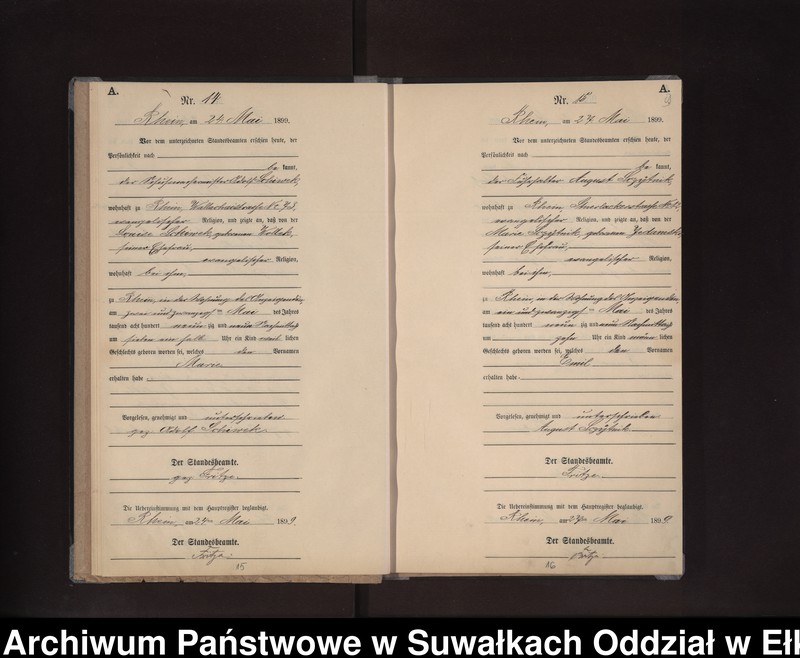 A.
Nr. 14
Rhein, am 24. Mai 1899.
Vor dem unterzeichneten Standesbeamten erschien heute, der
Persönlichkeit nach
be kannt,
der Adolf
wohnhaft zu Rhein,
evangelischer Religion, und zeigte an, daß von der
Louise geborenen
seiner Ehefrau,
evangelischer Religion,
wohnhaft bei ihm,
zu Rhein, in der Wohnung des Anzeigenden,
am zwei und zwanzigsten Mai des Jahres
tausend acht hundert neunzig und neun Nachmittags
um sieben ein halb Uhr ein Kind weiblichen
Geschlechts geboren worden sei, welches den Vornamen
Marie
erhalten habe.
Vorgelesen, genehmigt und unterschrieben
gez. Adolf
Der Standesbeamte.
gez. Fritze.
Die Uebereinstimmung mit dem Hauptregister beglaubigt.
Rhein, am 24ten Mai 1899.
Der Standesbeamte.
Fritze.
15
A.
Nr. 15
Rhein, am 27. Mai 1899.
Vor dem unterzeichneten Standesbeamten erschien heute, der
Persönlichkeit nach
be kannt,
der August
wohnhaft zu Rhein
evangelischer Religion, und zeigte an, daß von der
Marie geborenen
seiner Ehefrau,
evangelischer Religion,
wohnhaft bei ihm,
zu Rhein, in der Wohnung des Anzeigenden,
am ein und zwanzigsten Mai des Jahres
tausend acht hundert neunzig und neun Nachmittags
um zehn Uhr ein Kind männlichen
Geschlechts geboren worden sei, welches den Vornamen
Emil
erhalten habe.
Vorgelesen, genehmigt und unterschrieben
August
Der Standesbeamte.
Fritze.
Die Uebereinstimmung mit dem Hauptregister beglaubigt.
Rhein, am 27ten Mai 1899
Der Standesbeamte.
Fritze
16
Archiwum Państwowe w Suwałkach Oddział w Ełk